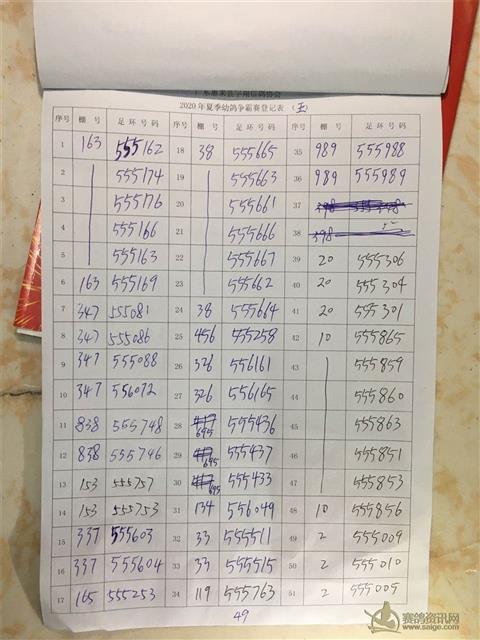 广东惠来县宇翔信鸽协会
2020年夏季幼鸽争霸赛登记表 (五)
序号 棚 号 足环号码 序号 棚 号 足环号码 序号 棚 号 足环号码
1 163 555162 18 38 555665 35 989 555988
2 555174 19 555663 36 989 555989
3 555176 20 555661 37
4 555166 21 555666 38 398
5 555163 22 555667 39 20 555306
6 163 555169 23 555662 40 20 555304
7 347 555081 24 38 555664 41 20 555301
8 347 555086 25 456 555258 42 10 555865
9 347 555088 26 326 556161 43 555859
10 347 556072 27 326 556165 44 555860
11 838 555748 28 695 555436 45 555863
12 838 555746 29 695 555437 46 555851
13 153 555757 30 695 555433 47 555853
14 153 555753 31 134 556049 48 10 555856
15 337 555603 32 33 555511 49 2 555009
16 337 555604 33 33 555515 50 2 555010
17 165 555253 34 119 555763 51 2 555005
49
赛鸽资讯网
www.saige.com